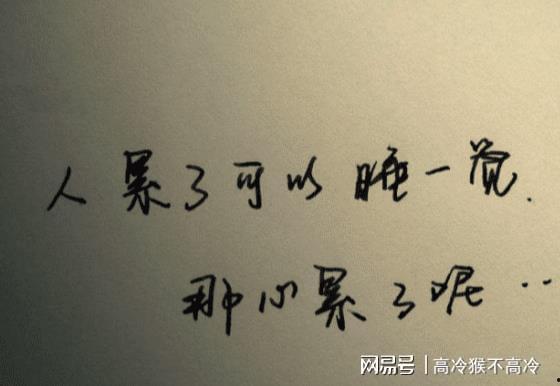 人累了可以睡一觉.
那心累了呢··
网易号 | 高冷猴不高冷